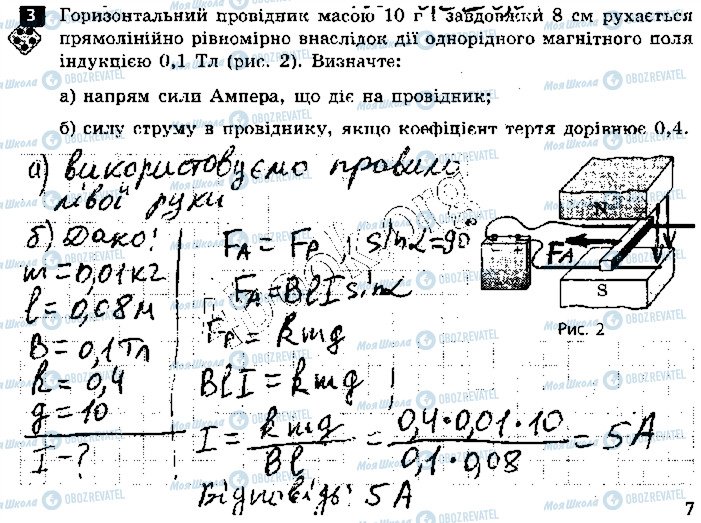 3 Горизонтальний провідник масою 10 г і завдовжки 8 см рухається
прямолінійно рівномірно внаслідок дії однорідного магнітного поля
індукцією 0,1 Тл (рис. 2). Визначте:
а) напрям сили Ампера, що діє на провідник;
б) силу струму в провіднику, якщо коефіцієнт тертя дорівнює 0,4.
а) використовуємо правило
лівої руки
б) Дано:
m = 0,01 кг
l = 0,08 м
B = 0,1 Тл
k = 0,4
g = 10
I - ?
F_A = F_P, sin α = 90°
F_A = B l I sin α
F_P = k m g
B l I = k m g
I = k m g / B l = 0,4 · 0,01 · 10 / 0,1 · 0,08 = 5 А
Відповідь: 5 А
N
F_A
S
Рис. 2
7
Моя Школа OBOZREVATEL